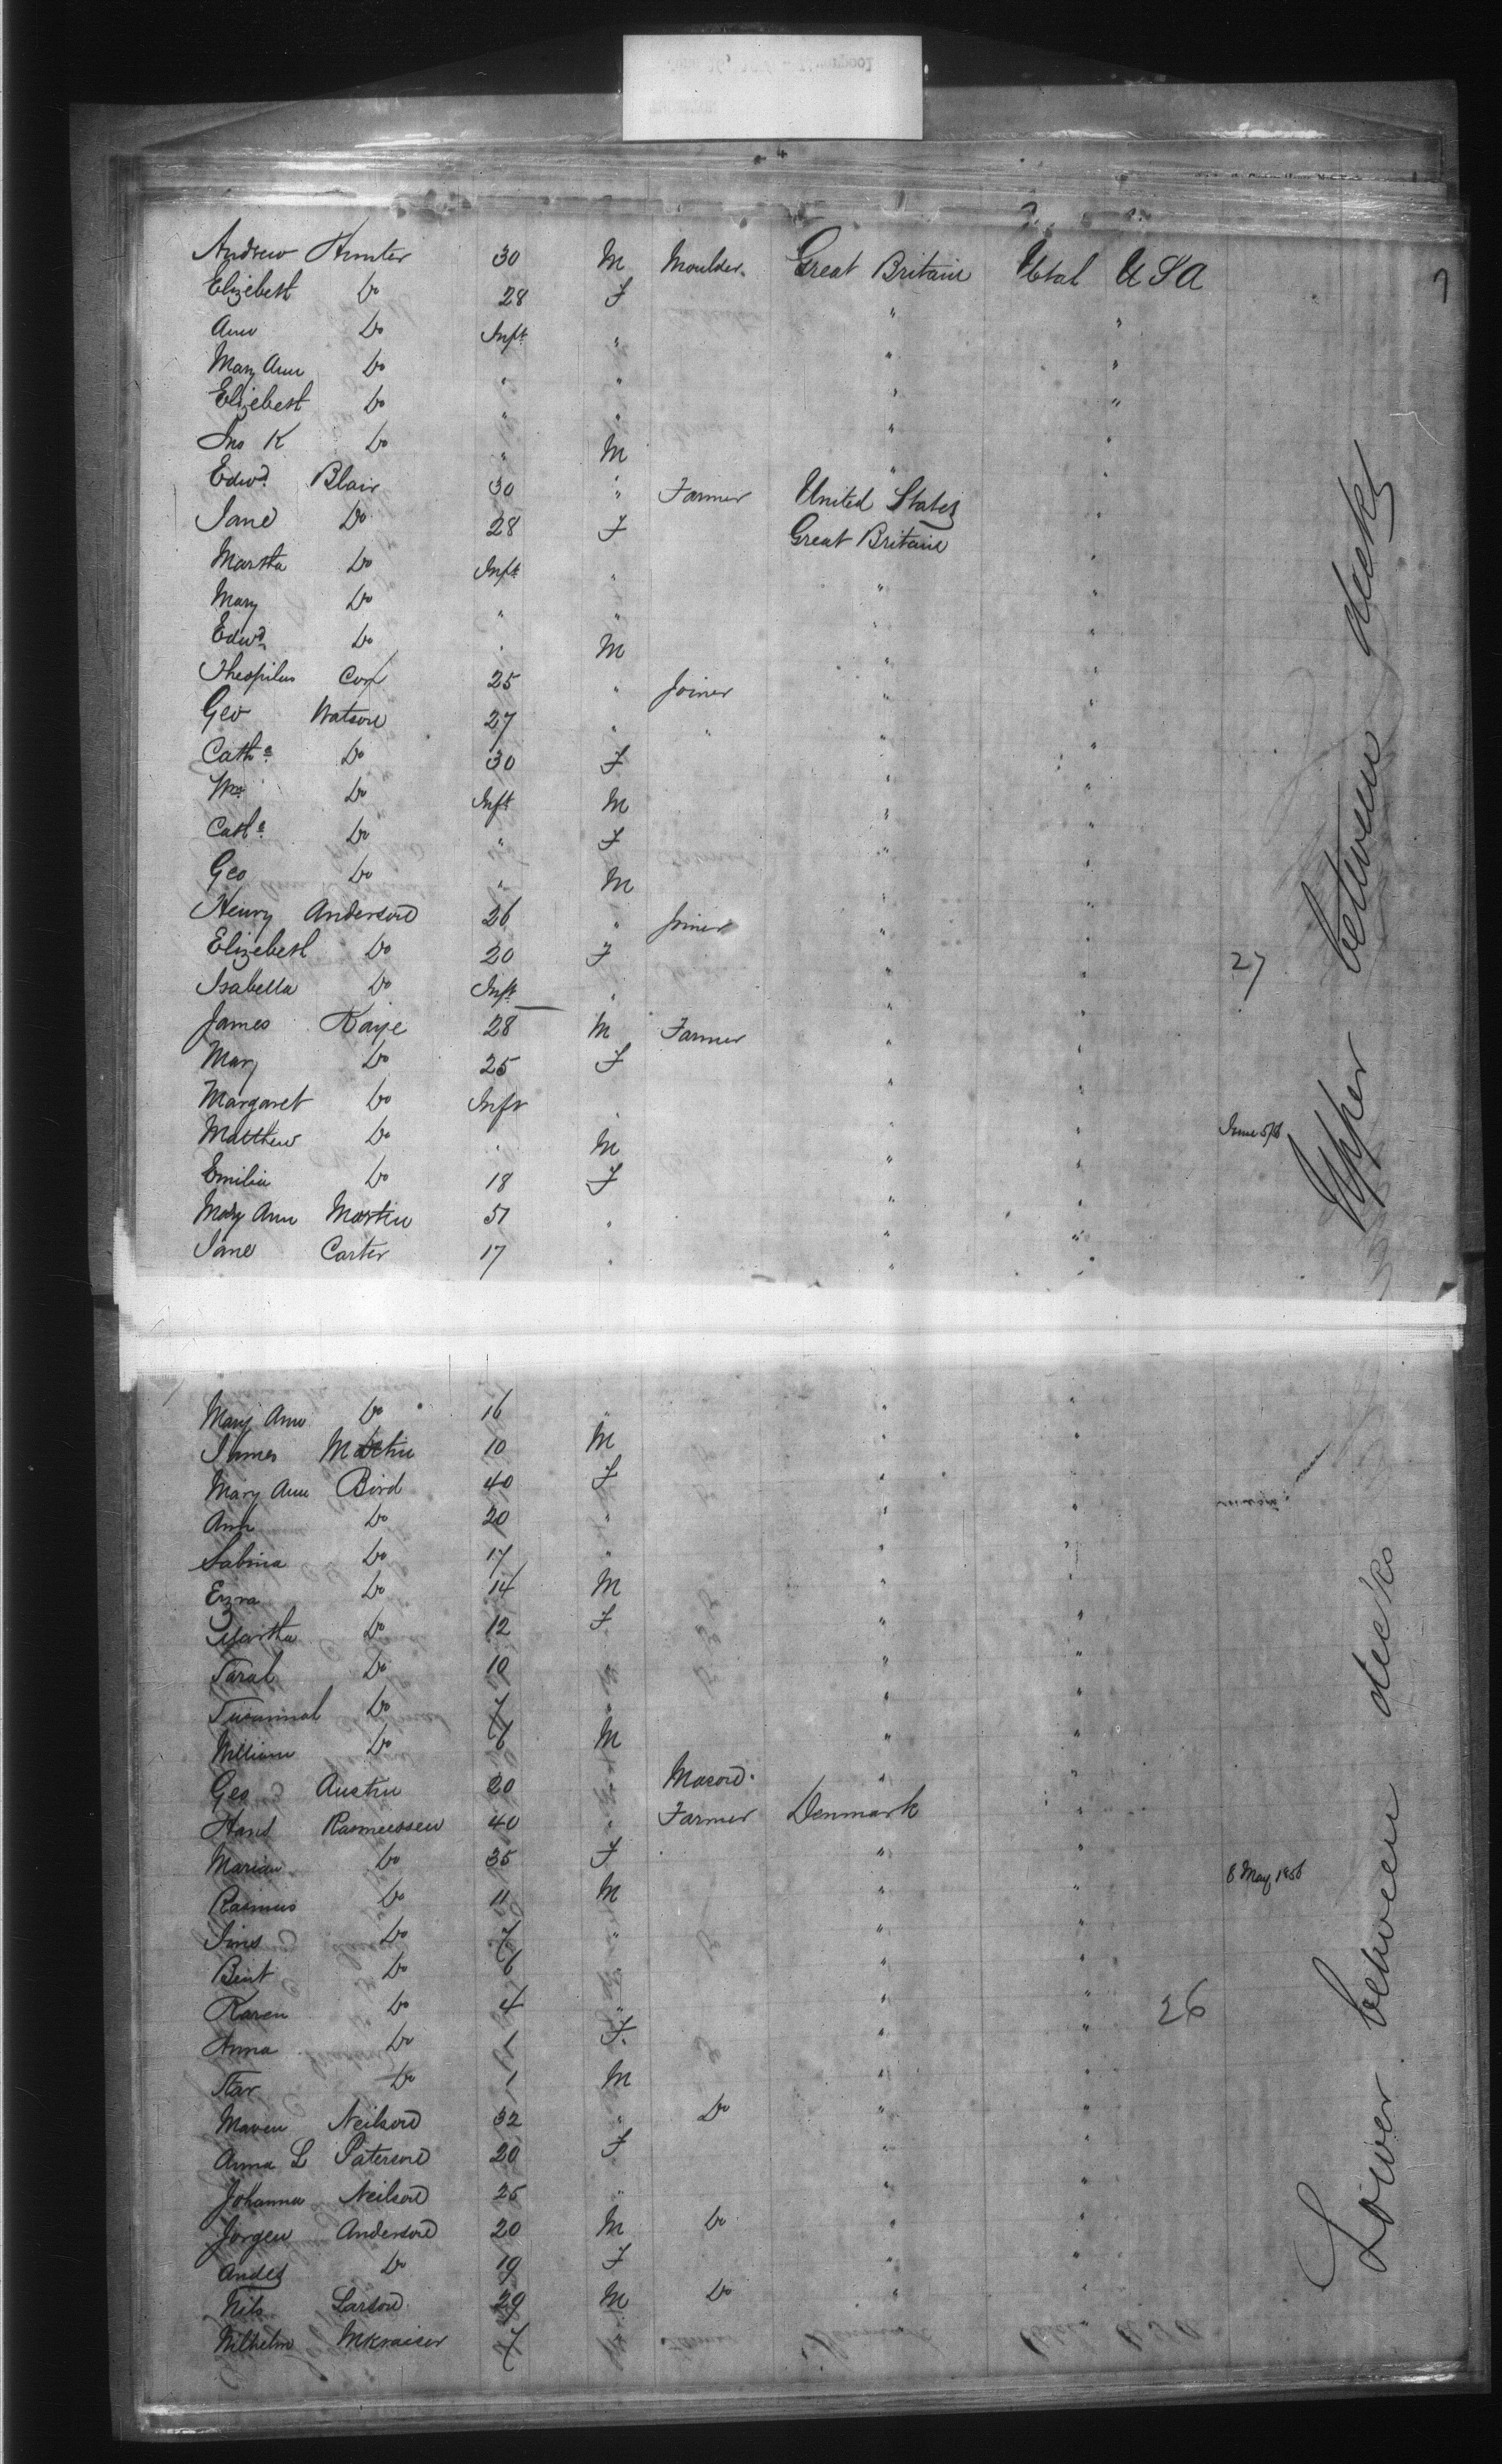 Andrew Hunter 30 M Moulder Great Britain Utah USA 7
Elizebeth Do 28 F " "
Ann Do Inft " " "
Mary Ann Do " " " "
Elizebeth Do " " " "
Jno K Do " M " "
Edwd. Blair 30 " Farmer United States "
Jane Do 28 F Great Britain "
Martha Do Inft " " "
Mary Do " " " "
Edwd. Do " M " "
Theopilus Cox 25 " Joiner " "
Geo Watson 27 " " " "
Cathe Do 30 F " "
Wm Do Inft M " "
Cathe Do " F " "
Geo Do " M " "
Henry Anderson 26 " Joiner " "
Elizebeth Do 20 F " " 27
Isabella Do Inft " " "
James Kaye 28 M Farmer " "
Mary Do 25 F " "
Margaret Do Inft " "
Matthew Do " M " " June 5/6
Emilia Do 18 F " "
Mary Ann Martin 51 " " "
Jane Carter 17 " " "
Upper between decks
Mary Ann Do 16 " " "
James Martin 10 M " "
Mary Ann Bird 40 F " "
Ann Do 20 " " "
Sabina Do 17 " " "
Ezra Do 14 M " "
Martha Do 12 F " "
Sarah Do 10 " " "
Susannah Do 7 " " "
William Do 6 M " "
Geo Austin 20 Mason " "
Hans Rasmussen 40 " Farmer Denmark "
Marian Do 35 F " "
Rasmus Do 11 M " " 8 May 1856
Jins Do 7 " " "
Bent Do 6 " " "
Karen Do 4 " " " 26
Anna Do 1 F " "
Star Do 1 M " "
Maren Neilson 32 " Do " "
Anna L Paterson 20 F " "
Johanna Neilson 25 " " "
Jorgen Anderson 20 M Do " "
Andes Do 19 F " "
Nils Larson 29 M Do " "
Wilhelm Mkraiser 7 "
Lower between decks